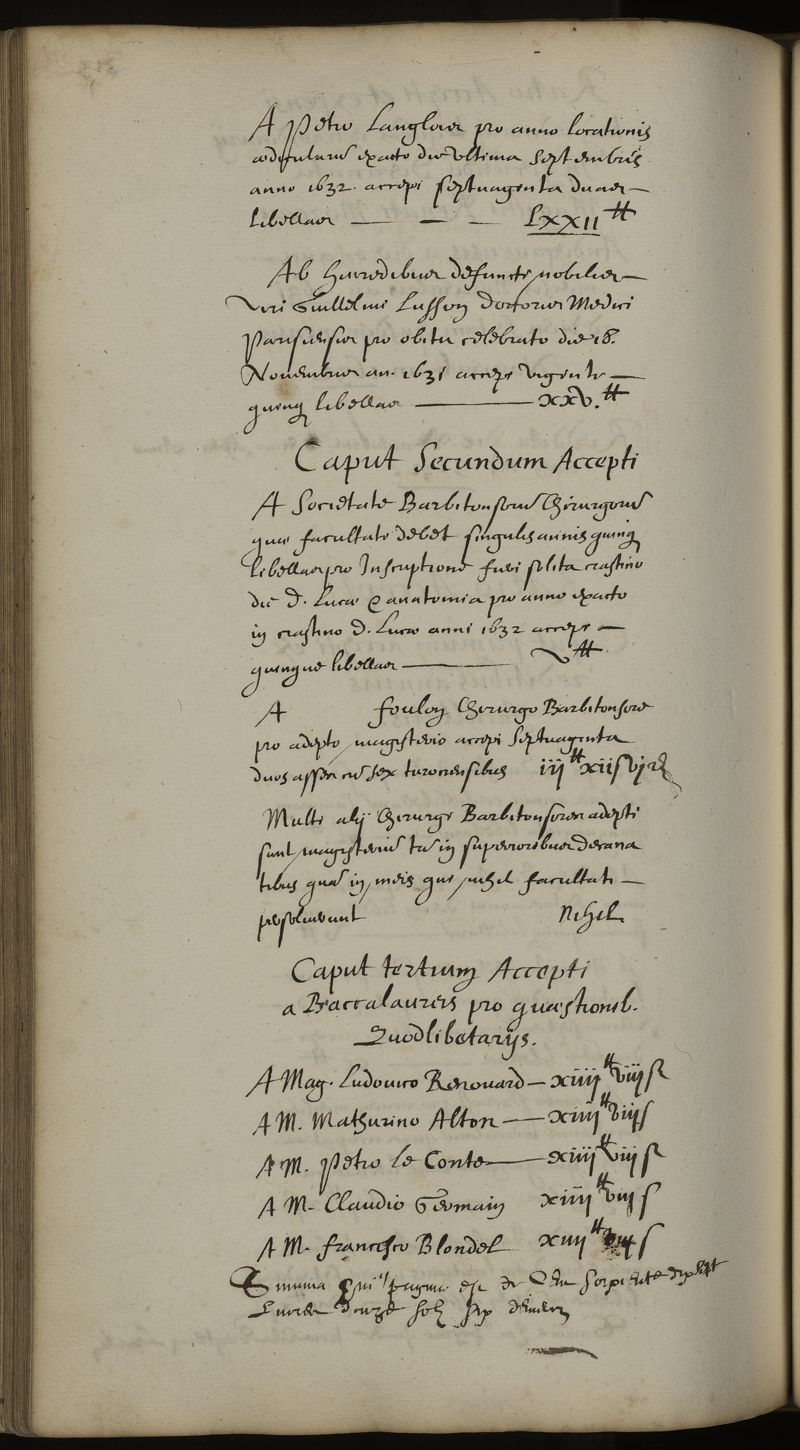 A Petro Langlois pro anno locationis
ædicularū exacto die ultima Septembris
anno 1632. accepi septuaginta duas
libellas — — — LXXII ₶
Ab hæredibus defuncti nobilis
Viri Guillelmi Lusson doctoris Medici
Parisiensis pro obitu celebrato die 18.
Novembris an. 1631 accepi viginti
quinq libellas — XXV. ₶
Caput Secundum Accepti
A Societate Barbitonsorū Chirurgorū
quæ facultati debet singulis annis quinq
libellas pro Inscriptione fieri solita crastino
die D. Lucæ & anatomia pro anno exacto
in crastino D. Lucæ anni 1632 accepi
quinque libellas — V ₶
A Foulon Chirurgo Barbitonsore
pro adepto magisterio accepi Septuaginta
duos asses cū sex turonensibus iij ₶ xii s vj d
Multi alij Chirurgi Barbitonsores adepti
sunt magisteriū tā in superioribus decana
tibus quā in meis qui nihil facultati
persolverunt Nihil
Caput tertium Accepti
a Baccalaureis pro quæstionib.
Quodlibetarijs.
A Mag. Ludovico Renouard — xiiij ₶ viij s
A M. Mathurino Alton — xiiij ₶ viij s
A M. Petro le Conte — xiiij ₶ viij s
A M. Claudio Germain xiiij ₶ viij s
A M. Francisco Blondel xiiij ₶ viij s
Summa pagina est de Cent Soixante dixsept
Livres douze solz six deniers
313